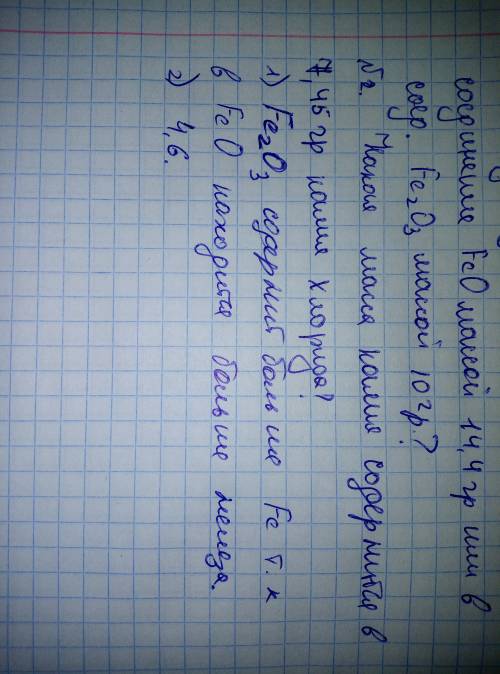 соединение FeO массой 14,4 гр или в
соед. Fe₂O₃ массой 10 гр.?
№2. Какая масса калия содержится в
7,45 гр калия хлорида?
1) Fe₂O₃ содержит больше Fe т.к
в FeO находится больше железа.
2) 4,6.